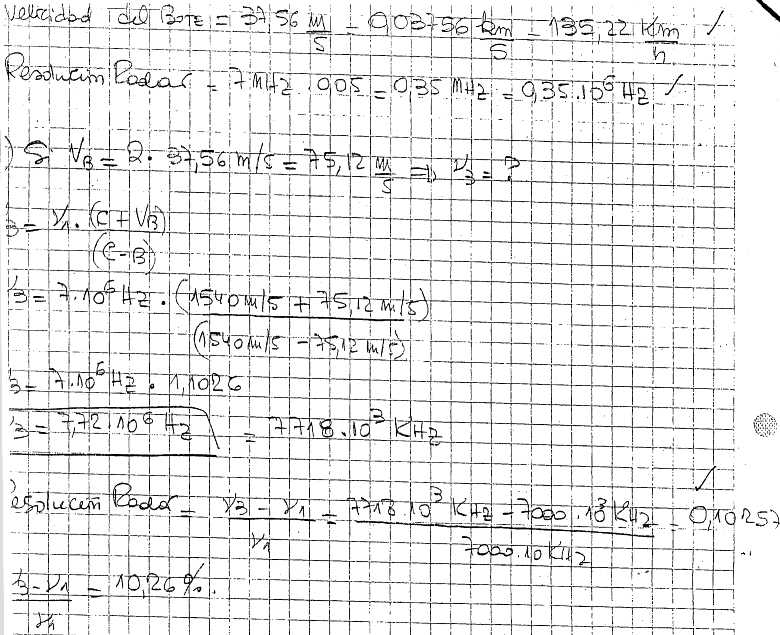 Velocidad del Bote = 37,56 m/s = 0,03756 km/s = 135,22 Km/h ✓
Resolución Radar = 7 MHz · 0,05 = 0,35 MHz = 0,35·10⁶ Hz ✓
) Si V_B = 2 · 37,56 m/s = 75,12 m/s ⇒ ν₃ = ?
3 = ν₁ · (C + VB)/(C - B)
3 = 7·10⁶ Hz · (1540 m/s + 75,12 m/s)/(1540 m/s - 75,12 m/s)
3 = 7·10⁶ Hz · 1,1026
3 = 7,72·10⁶ Hz = 7718·10³ KHz
esolución Radar = (ν3 - ν1)/ν1 = (7718·10³ KHz - 7000·10³ KHz)/(7000·10 KHz) = 0,10257 ✓
(3 - ν1)/ν1 = 10,26 %.